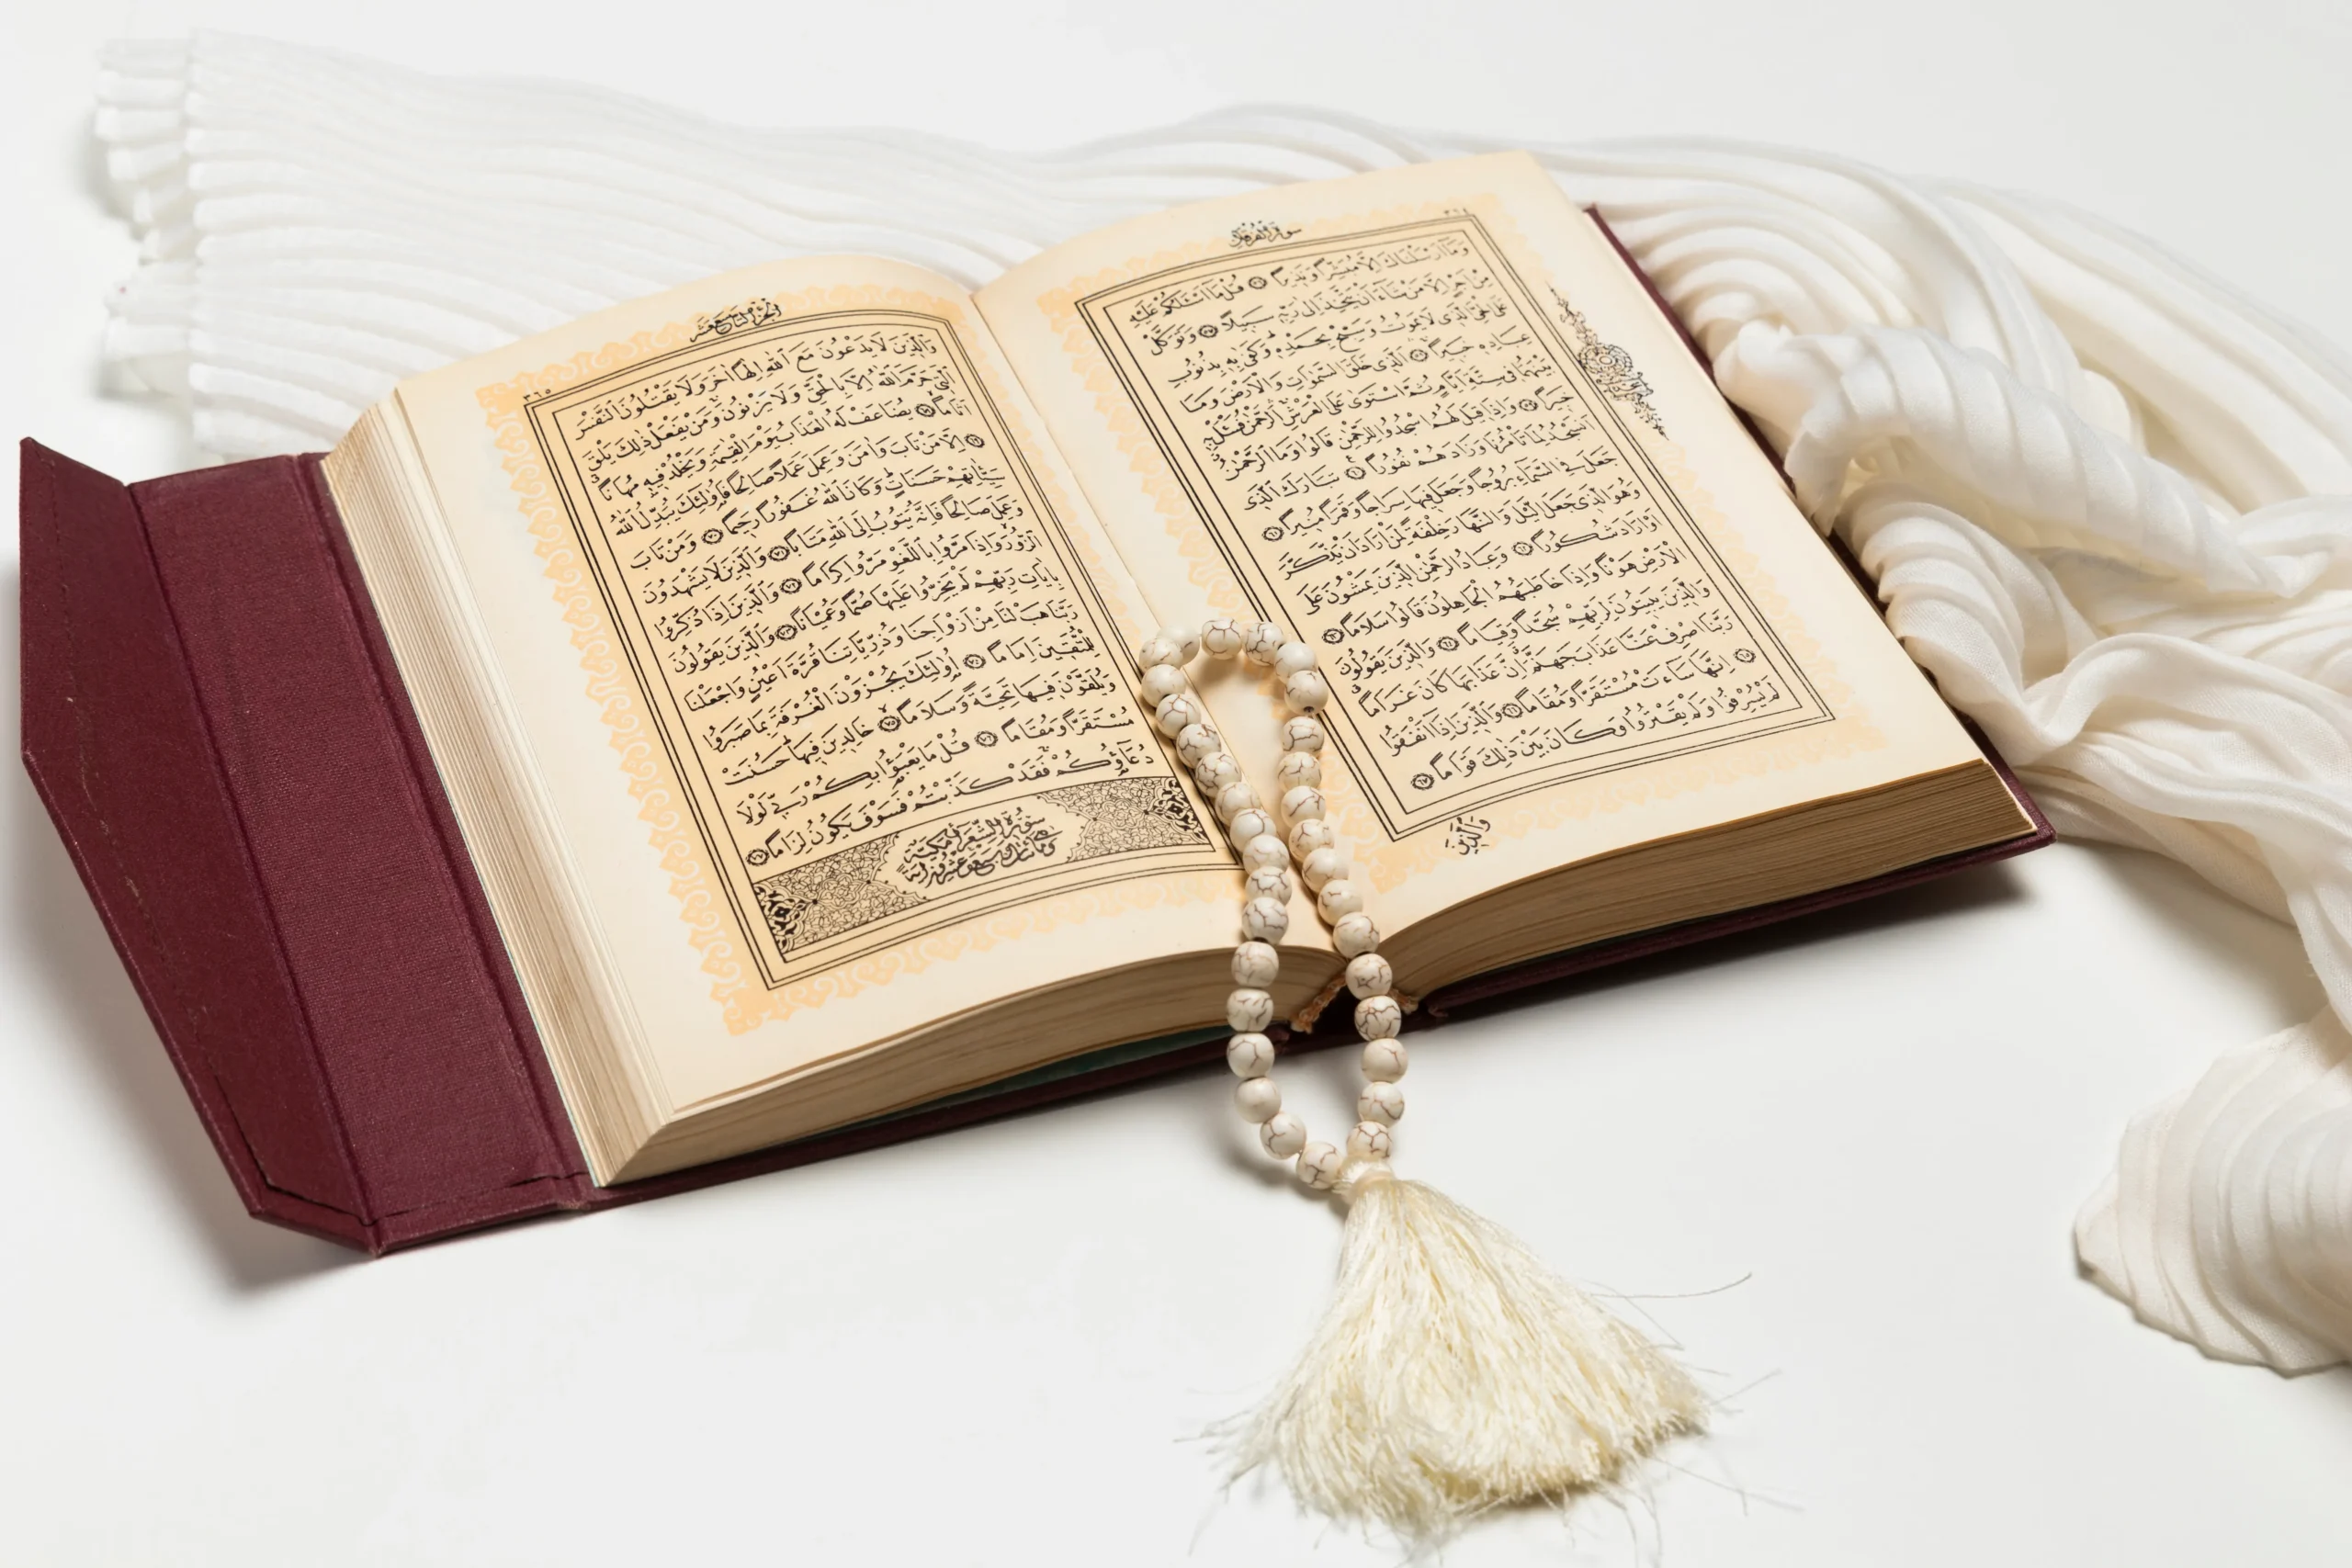 سورة الفرقان
٣٦٤
وَمَآ اَرْسَلْنَاكَ اِلَّا مُبَشِّرًا وَنَذِيرًا ﴿٥٦﴾ قُلْ مَٓا اَسْـَٔلُكُمْ عَلَيْهِ
مِنْ اَجْرٍ اِلَّا مَنْ شَٓاءَ اَنْ يَتَّخِذَ اِلٰى رَبِّهٖ سَبِيلًا ﴿٥٧﴾ وَتَوَكَّلْ
عَلَى الْحَيِّ الَّذِى لَا يَمُوتُ وَسَبِّحْ بِحَمْدِهٖ وَكَفٰى بِهٖ بِذُنُوبِ
عِبَادِهٖ خَبِيرًا ﴿٥٨﴾ اَلَّذِى خَلَقَ السَّمٰوَاتِ وَالْاَرْضَ وَمَا
بَيْنَهُمَا فِى سِتَّةِ اَيَّامٍ ثُمَّ اسْتَوٰى عَلَى الْعَرْشِ اَلرَّحْمٰنُ فَسْـَٔلْ بِهٖ
خَبِيرًا ﴿٥٩﴾ وَاِذَا قِيلَ لَهُمُ اسْجُدُوا لِلرَّحْمٰنِ قَالُوا وَمَا الرَّحْمٰنُ
اَنَسْجُدُ لِمَا تَأْمُرُنَا وَزَادَهُمْ نُفُورًا ﴿٦٠﴾ تَبَارَكَ الَّذِى
جَعَلَ فِى السَّمَٓاءِ بُرُوجًا وَجَعَلَ فِيهَا سِرَاجًا وَقَمَرًا مُنِيرًا ﴿٦١﴾
وَهُوَ الَّذِى جَعَلَ الَّيْلَ وَالنَّهَارَ خِلْفَةً لِمَنْ اَرَادَ اَنْ يَذَّكَّرَ
اَوْ اَرَادَ شُكُورًا ﴿٦٢﴾ وَعِبَادُ الرَّحْمٰنِ الَّذِينَ يَمْشُونَ عَلَى
الْاَرْضِ هَوْنًا وَاِذَا خَاطَبَهُمُ الْجَاهِلُونَ قَالُوا سَلَامًا ﴿٦٣﴾
وَالَّذِينَ يَبِيتُونَ لِرَبِّهِمْ سُجَّدًا وَقِيَامًا ﴿٦٤﴾ وَالَّذِينَ يَقُولُونَ
رَبَّنَا اصْرِفْ عَنَّا عَذَابَ جَهَنَّمَ اِنَّ عَذَابَهَا كَانَ غَرَامًا
﴿٦٥﴾ اِنَّهَا سَٓاءَتْ مُسْتَقَرًّا وَمُقَامًا ﴿٦٦﴾ وَالَّذِينَ اِذَٓا اَنْفَقُوا
لَمْ يُسْرِفُوا وَلَمْ يَقْتُرُوا وَكَانَ بَيْنَ ذٰلِكَ قَوَامًا ﴿٦٧﴾
وَالَّذِينَ
الجزء التاسع عشر
٣٦٥
وَالَّذِينَ لَا يَدْعُونَ مَعَ اللّٰهِ اِلٰهًا اٰخَرَ وَلَا يَقْتُلُونَ النَّفْسَ
الَّتِى حَرَّمَ اللّٰهُ اِلَّا بِالْحَقِّ وَلَا يَزْنُونَ وَمَنْ يَفْعَلْ ذٰلِكَ يَلْقَ
اَثَامًا ﴿٦٨﴾ يُضَاعَفْ لَهُ الْعَذَابُ يَوْمَ الْقِيٰمَةِ وَيَخْلُدْ فِيهٖ مُهَانًا
﴿٦٩﴾ اِلَّا مَنْ تَابَ وَاٰمَنَ وَعَمِلَ عَمَلًا صَالِحًا فَاُو۬لٰٓئِكَ يُبَدِّلُ اللّٰهُ
سَيِّـَٔاتِهِمْ حَسَنَاتٍ وَكَانَ اللّٰهُ غَفُورًا رَحِيمًا ﴿٧٠﴾ وَمَنْ تَابَ
وَعَمِلَ صَالِحًا فَاِنَّهُ يَتُوبُ اِلَى اللّٰهِ مَتَابًا ﴿٧١﴾ وَالَّذِينَ لَا يَشْهَدُونَ
الزُّورَ وَاِذَا مَرُّوا بِاللَّغْوِ مَرُّوا كِرَامًا ﴿٧٢﴾ وَالَّذِينَ اِذَا ذُكِّرُوا
بِاٰيَاتِ رَبِّهِمْ لَمْ يَخِرُّوا عَلَيْهَا صُمًّا وَعُمْيَانًا ﴿٧٣﴾ وَالَّذِينَ يَقُولُونَ
رَبَّنَا هَبْ لَنَا مِنْ اَزْوَاجِنَا وَذُرِّيَّاتِنَا قُرَّةَ اَعْيُنٍ وَاجْعَلْنَا
لِلْمُتَّقِينَ اِمَامًا ﴿٧٤﴾ اُو۬لٰٓئِكَ يُجْزَوْنَ الْغُرْفَةَ بِمَا صَبَرُوا
وَيُلَقَّوْنَ فِيهَا تَحِيَّةً وَسَلَامًا ﴿٧٥﴾ خَالِدِينَ فِيهَا حَسُنَتْ
مُسْتَقَرًّا وَمُقَامًا ﴿٧٦﴾ قُلْ مَا يَعْبَؤُ۬ا بِكُمْ رَبِّى لَوْلَا
دُعَٓاؤُ۬كُمْ فَقَدْ كَذَّبْتُمْ فَسَوْفَ يَكُونُ لِزَامًا ﴿٧٧﴾
سورة الشعراء مكية
وهى مائتان وسبع وعشرون اية